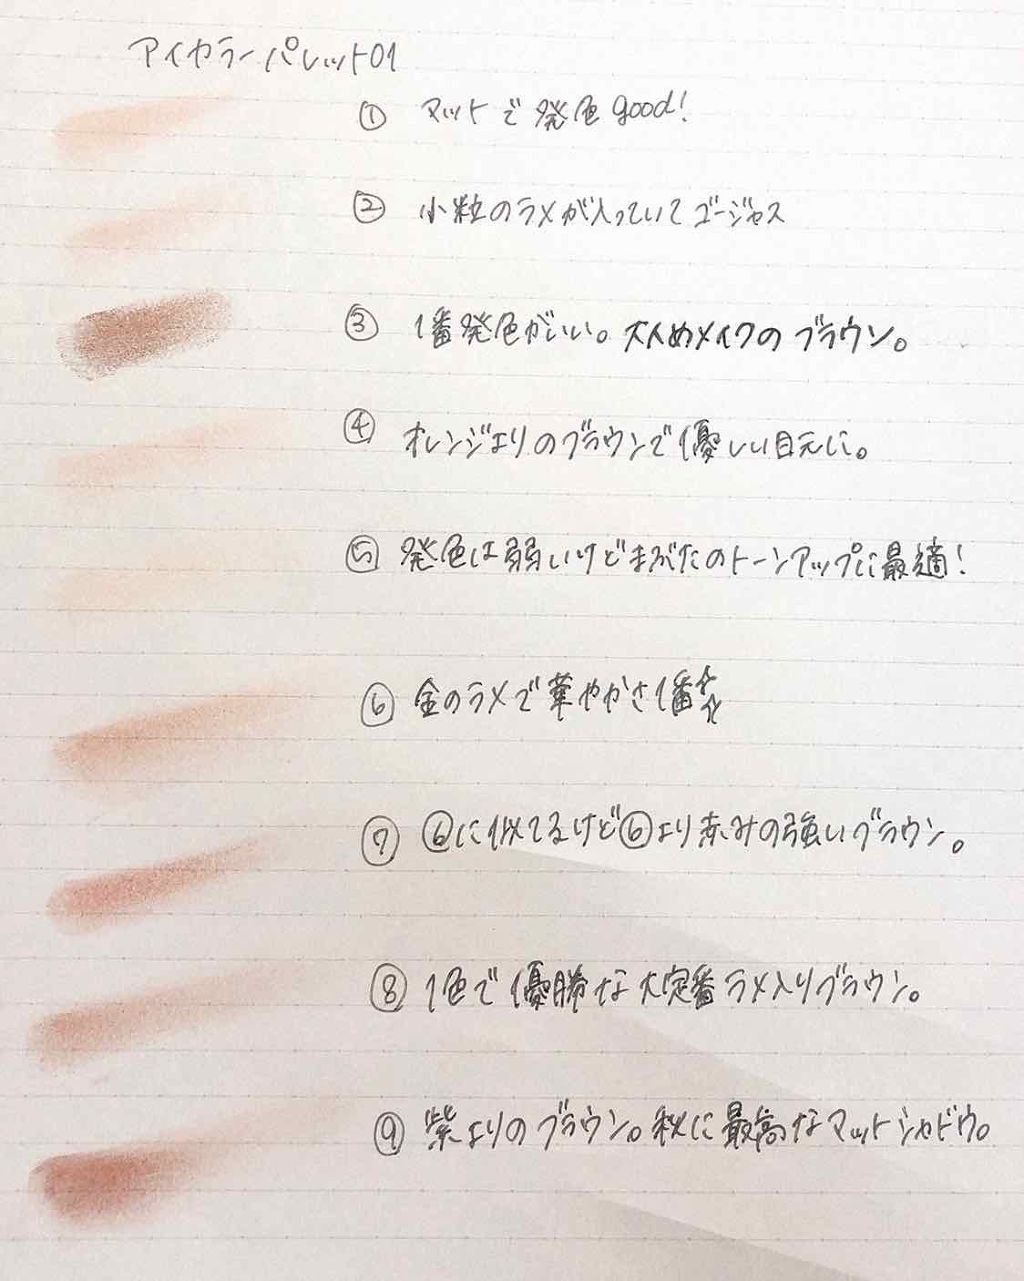 アイカラーパレット01
① マットで発色good!
② 小粒のラメが入っていてゴージャス
③ 1番発色がいい。大人めメイクのブラウン。
④ オレンジよりのブラウンで優しい目元に。
⑤ 発色は弱いけどまぶたのトーンアップに最適!
⑥ 金のラメで華やかさ1番☆☆
⑦ ⑥に似てるけど⑥より赤みの強いブラウン。
⑧ 1色で優勝な大定番ラメ入りブラウン。
⑨ 紫よりのブラウン。秋に最高なマットシャドウ。